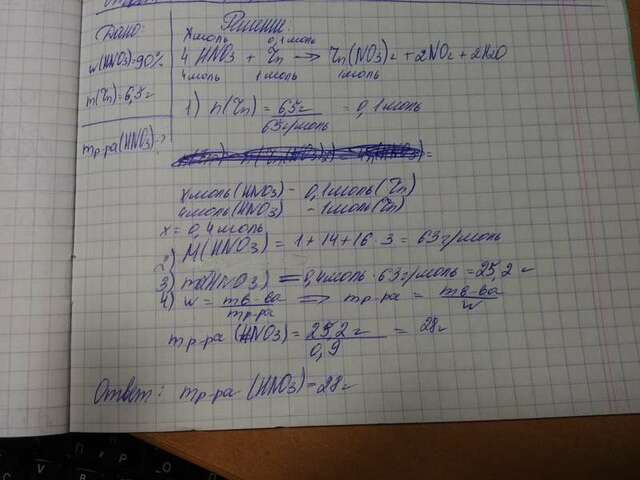 Дано:
w(HNO3)=90%
m(Zn)=6,5г
mр-ра(HNO3)-?
Решение.
xмоль 0,1моль
4 HNO3 + Zn → Zn(NO3)2 + 2NO2 + 2H2O
4моль 1моль 1моль
1) n(Zn) = 6,5г / 65г/моль = 0,1моль
xмоль(HNO3) - 0,1моль(Zn)
4моль(HNO3) - 1моль(Zn)
x = 0,4моль
2) M(HNO3) = 1+14+16·3 = 63г/моль
3) m(HNO3) = 0,4моль·63г/моль = 25,2г
4) w = mв-ва / mр-ра => mр-ра = mв-ва / w
mр-ра (HNO3) = 25,2г / 0,9 = 28г
Ответ: mр-ра (HNO3) = 28г